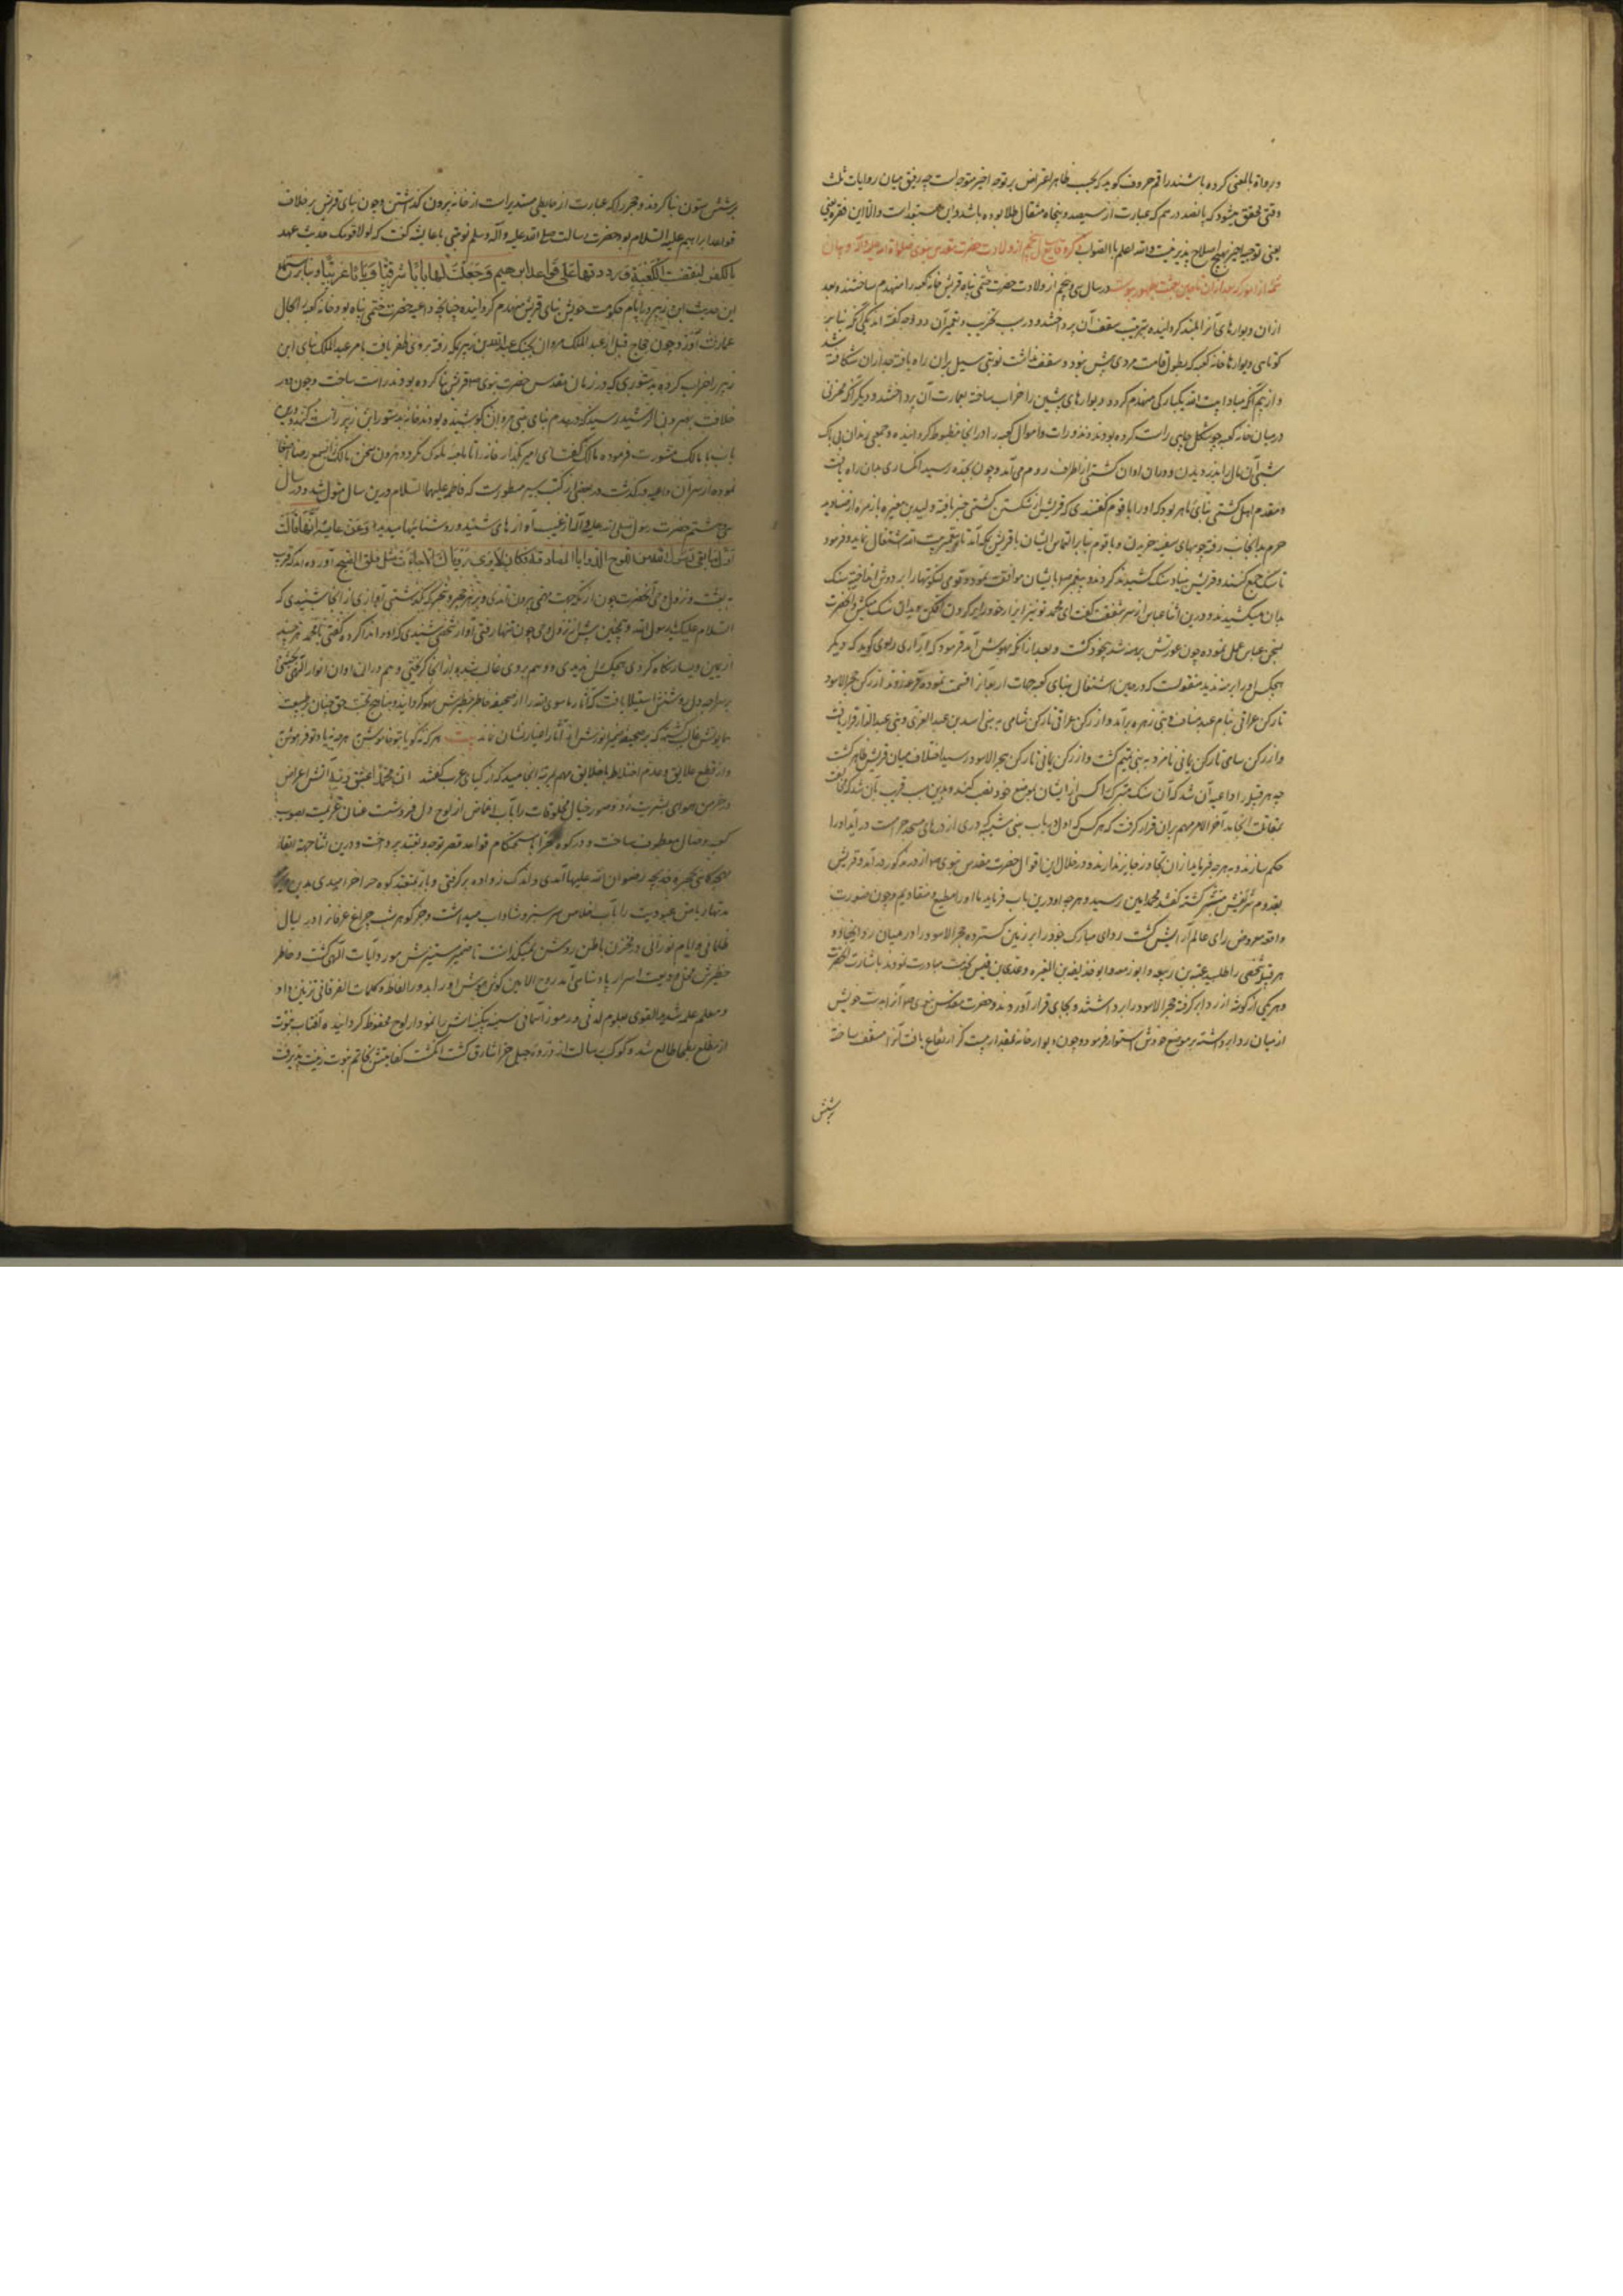 و رواة بالمعنی کرده باشند راقم حروف کوید که بحسب ظاهر اعتراض بر توجیه اخیر متوجه است چه رفیق میان روایات ثلث
وقتی محقق میشود که پانصد درهم که عبارت از سیصد و پنجاه مثقال طلا بوده باشد و این مستبعد است والا این فقره
یعنی توجیه اخیر بهیچ اصلاح پذیر نیست والله اعلم بالصواب ذکر وقایع سال پنجم از ولادت حضرت مقدس نبوی صلواة الله علیه و آله و بیان
در سال سی و پنجم از ولادت حضرت ختمی پناه قریش خانه کعبه را منهدم ساختند و بعد
از ان دیوارهای آنرا بلند کردانیده بترتیب سقف آن پرداختند و در سبب تخریب و تعمیر آن دو وجه گفته اند یکی آنکه بنا بر
کوتاهی دیوارها خانه کعبه که بطول قامت مردی بیش نبود و سقف نداشت نوبتی سیل بران راه یافته جداران شکافته شد
و از بیم آنکه مبادا بیت الله یکبارکی منهدم کردد دیوارهای پیشین را خراب ساخته بعمارت آن پرداختند و دیگر آنکه مخزنی
در میان خانه کعبه چو شکل چاهی راست کرده بودند و نذورات و اموال کعبه را در انجا مضبوط کردانیده و جمعی دزدان بی باک
شبی آن مال را بدزدیدند و دران اوان کشتی از اطراف روم می آمد و چون بجده رسید انکساری بدان راه یافت
و مقدم اهل کشتی بنائی ماهر بود که او را باقوم گفتندی که قریش از شکستن کشتی خبر یافته ولید بن مغیره با زمره از صنادید
حرم بدانجانب رفته چوبهای سفینه خریدند و باقوم بنا بر التماس ایشان با قریش بمکه آمد تا بتعمیر بیت الله اشتغال نماید و فرمود
تا سنک جمع کنند و قریش بنیاد سنک کشیدن کردند و پیغمبر صلعم با ایشان موافقت نمود و قومی لنکوتها را بر دوش انداخته سنک
بدان میکشیدند و درین اثنا عباس از سر شفقت گفت ای محمد تو نیز ازار خود را بر کردن افکن و بدان سنک میکش و آنحضرت
بسخن عباس عمل نموده چون عورتش برهنه شد بیخود کشت و بعد از انکه بهوش آمد فرمود که ازاری راوی گوید که دیگر
هیچکس او را برهنه ندید منقولست که در حین اشتغال ببنای کعبه جهات اربعه را قسمت نموده قرعه زدند از رکن حجر الاسود
تا رکن عراقی بنام عبد مناف و بنی زهره برآمد و از رکن عراقی تا رکن شامی به بنی اسد بن عبد العزی و بنی عبد الدار قرار یافت
و از رکن شامی تا رکن یمانی نامزد به بنی تیم گشت و از رکن یمانی تا رکن حجر الاسود رسید اختلاف میان قریش ظاهر گشت
چه هر قبیله را داعیه آن شد که آن سنک متبرک را کسی از ایشان بموضع خود نصب کند و بدین سبب قریب بآن شد که مخالفت
بمقاتلت انجامد آخر الامر مهم بران قرار گرفت که هر کس که اول از باب بنی شیبه که دری از درهای مسجد حرامست درآید او را
حکم سازند و بهر چه فرماید از ان تجاوز جایز ندارند و در خلال این اقوال حضرت مقدس نبوی صلعم از در مذکور درآمد و قریش
بقدوم شریفش مستبشر گشته گفتند محمد امین رسید و هر چه او درین باب فرماید ما او را مطیع و منقادیم و چون صورت
واقعه معروض رای عالم آرایش گشت ردای مبارک خود را بر زمین گسترده حجر الاسود را در میان ردا نهاد و
هر قبیله شخصی را طلبید عتبه بن ربیعه و ابو زمعه و ابو حذیفه بن المغیره و عدی بن قیس بخدمت مبادرت نمودند باشارت آنحضرت
و هر یکی از گوشه از ردا بر گرفته حجر الاسود را برداشتند و بجای قرار آوردند و حضرت مقدس نبوی صلعم آنرا بدست خویش
از میان ردا برداشته بر موضع خودش استوار فرمود و چون دیوار خانه بمقدار بیست کز ارتفاع یافت آنرا مسقف ساخته
بر شش
بر شش ستون بنا کردند و حجر را که عبارت از حایطی مستدیر است از خانه بیرون گذاشتند و چون بنای قریش بر خلاف
قواعد ابراهیم علیه السلام بود حضرت رسالت صلی الله علیه و آله و سلم نوبتی با عایشه گفت که لولا قومک حدیث عهد
بالکفر لنقضت الکعبة و رددتها علی قواعد ابراهیم و جعلت لها بابا شرقیا و بابا غربیا و بنا بر استماع
این حدیث ابن زبیر در ایام حکومت خویش بنای قریش منهدم کردانیده چنانچه داعیه حضرت ختمی پناه بود خانه کعبه را بحال
عمارت آورد و چون حجاج قبل از عبد الملک مروان بجنک عبد الله بن زبیر بمکه رفته بر وی ظفر یافت بامر عبد الملک بنای ابن
زبیر را خراب کرده بدستوری که در زمان مقدس حضرت نبوی صلعم قریش بنا کرده بودند راست ساخت و چون دور
خلافت بهرون الرشید رسید که در هدم بنای بنی مروان کوشیده بودند خانه بدستور ابن زبیر راست کنند و درین
باب با مالک مشورت فرموده مالک گفت ای امیر بگذار خانه را تا ملعبه ملوک نکردد هرون سخن مالک را بسمع رضا اصغا
نموده از سر آن داعیه در گذشت در بعضی از کتب سیر مسطورست که فاطمه علیها السلام درین سال متولد شد و در سال
سی و هشتم حضرت رسول صلی الله علیه و آله از غیب آوازهای شنید و روشنائیها میدید و عن عایشه انها قالت
اول ما بدئ به رسول الله من الوحی الرؤیا الصادقة فکان لا یری رؤیا الا جاءت مثل فلق الصبح آورده اند که قریب
به بعثت و نزول وحی آنحضرت چون از مکه جهت مهمی بیرون آمدی و بر هر حجر و شجر که گذشتی آوازی از انجا شنیدی که
السلام علیک یا رسول الله و همچنین پیش از نزول وحی چون تنها رفتی آواز شخصی شنیدی که او را ندا کرده گفتی یا محمد هر چند
از یمین و یسار نگاه کردی هیچکس را ندیدی و وهم بر وی غالب شده از انجا گریختی و هم دران اوان انوار الهی بحیثیتی
بر ساحه دل روشنش استیلا یافت که آثار ماسوی الله را از صحیفه خاطر خطیرش محو گردانید
بیت هر که نه گویا بتو خاموش به هر چه نه یاد تو فراموش به
و از قطع علایق و عدم اختلاط با خلایق مهم بمرتبه انجامید که ازکیای عرب گفتند ان محمدا عشق ربه آتش اعراض
در خرمن هوای بشریت زد و صور خیال مخلوقات را بآب اغماض از لوح دل فروشست عنان عزیمت بصوب
کعبه وصال معطوف ساخت و در کوه حرا باستحکام قواعد قصر توحید و تعبد پرداخت و درین اثنا جهة
کاهی بحجره خدیجه رضوان الله علیها آمدی و اندک زواده برگرفتی و باز بمتعبد کوه حرا خرامیدی
مدتها ریاض عبودیت را بآب اخلاص سرسبز و شاداب میداشت و جز گوهر شب چراغ عرفان را در لیال
ظلمانی و ایام نورانی در مخزن باطن روشن نمیگذاشت تا ضمیر مستنیرش مورد آیات الهی گشت و خاطر
خطیرش مخزن ودیعت اسرار پادشاهی آمد روح الامین گوش هوش او را بدرر الفاظ و کلمات الفرقانی تزیین داد
و معلم علمه شدید القوی بعلوم لدنی و رموز آسمانی سینه بی کینه اش را نمودار لوح محفوظ کردانیده آفتاب نبوت
از مطلع بطحا طالع شد و کوکب رسالت از ذروه جبل حرا شارق گشت انگشت کفایتش بخاتم نبوت زینت پذیرفت